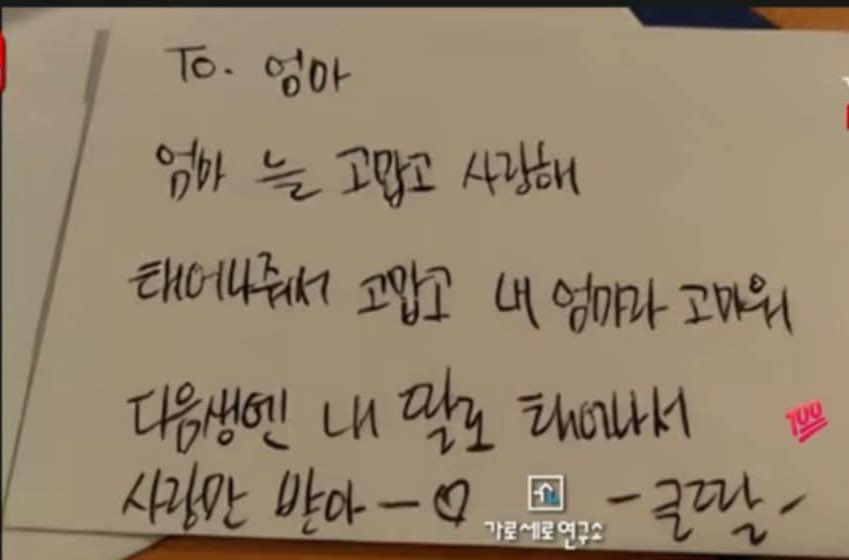 To. 엄마
엄마 늘 고맙고 사랑해
태어나줘서 고맙고 내 엄마라 고마워
다음생엔 내 딸로 태어나서
사랑만 받아-♡ -귤딸-
100
가로세로연구소